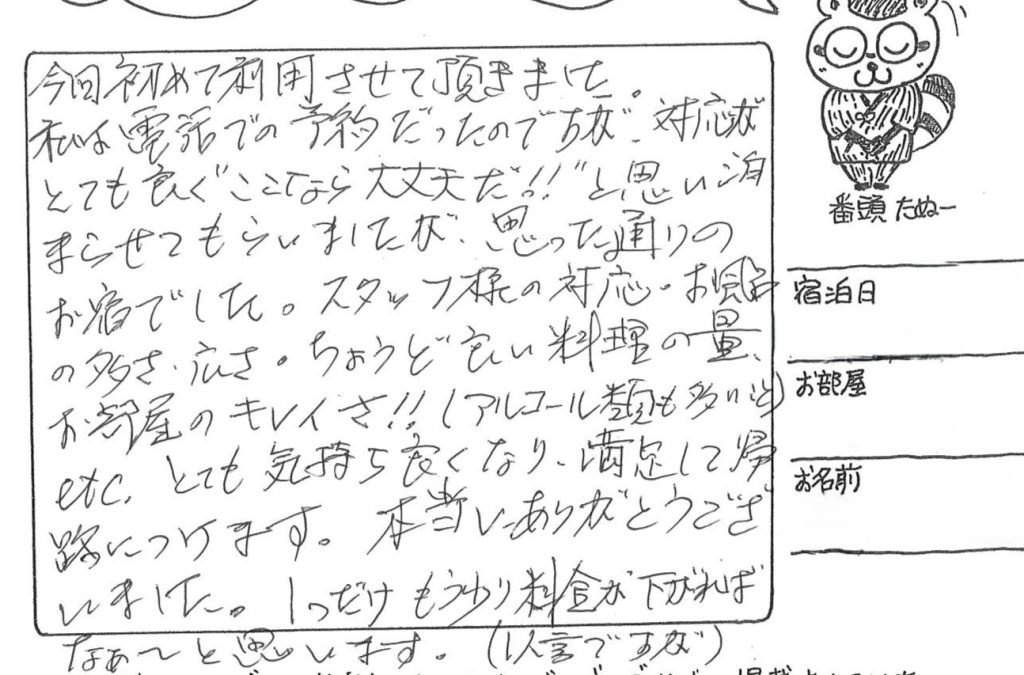 今回初めて利用させて頂きました。
私は電話での予約だったのですが、対応が
とても良く"ここなら大丈夫だ!!"と思い泊
まらせてもらいましたが、思った通りの
お宿でした。スタッフ様の対応・お風呂
の多さ・広さ・ちょうど良い料理の量、
お部屋のキレイさ!!(アルコール類も多いと)
etc. とても気持ち良くなり、満足して帰
路につけます。本当にありがとうござ
いました。1つだけもう少し料金が下がれば
なぁ〜と思います。(1人言ですが)
番頭 たぬー
宿泊日
お部屋
お名前